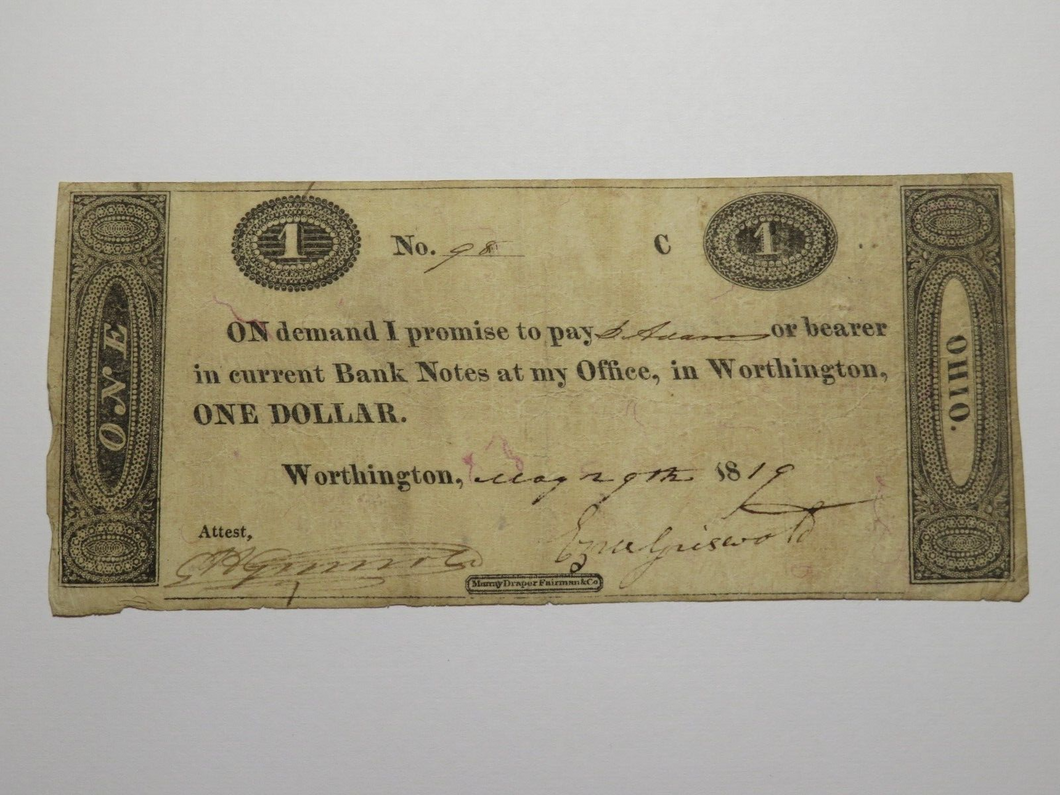 1 No. 98 C 1
ONE
ON demand I promise to pay S. Adams or bearer
in current Bank Notes at my Office, in Worthington,
ONE DOLLAR.
Worthington, May 29th 1819
Attest,
Ezra Griswold
Murray Draper Fairman & Co
OHIO.